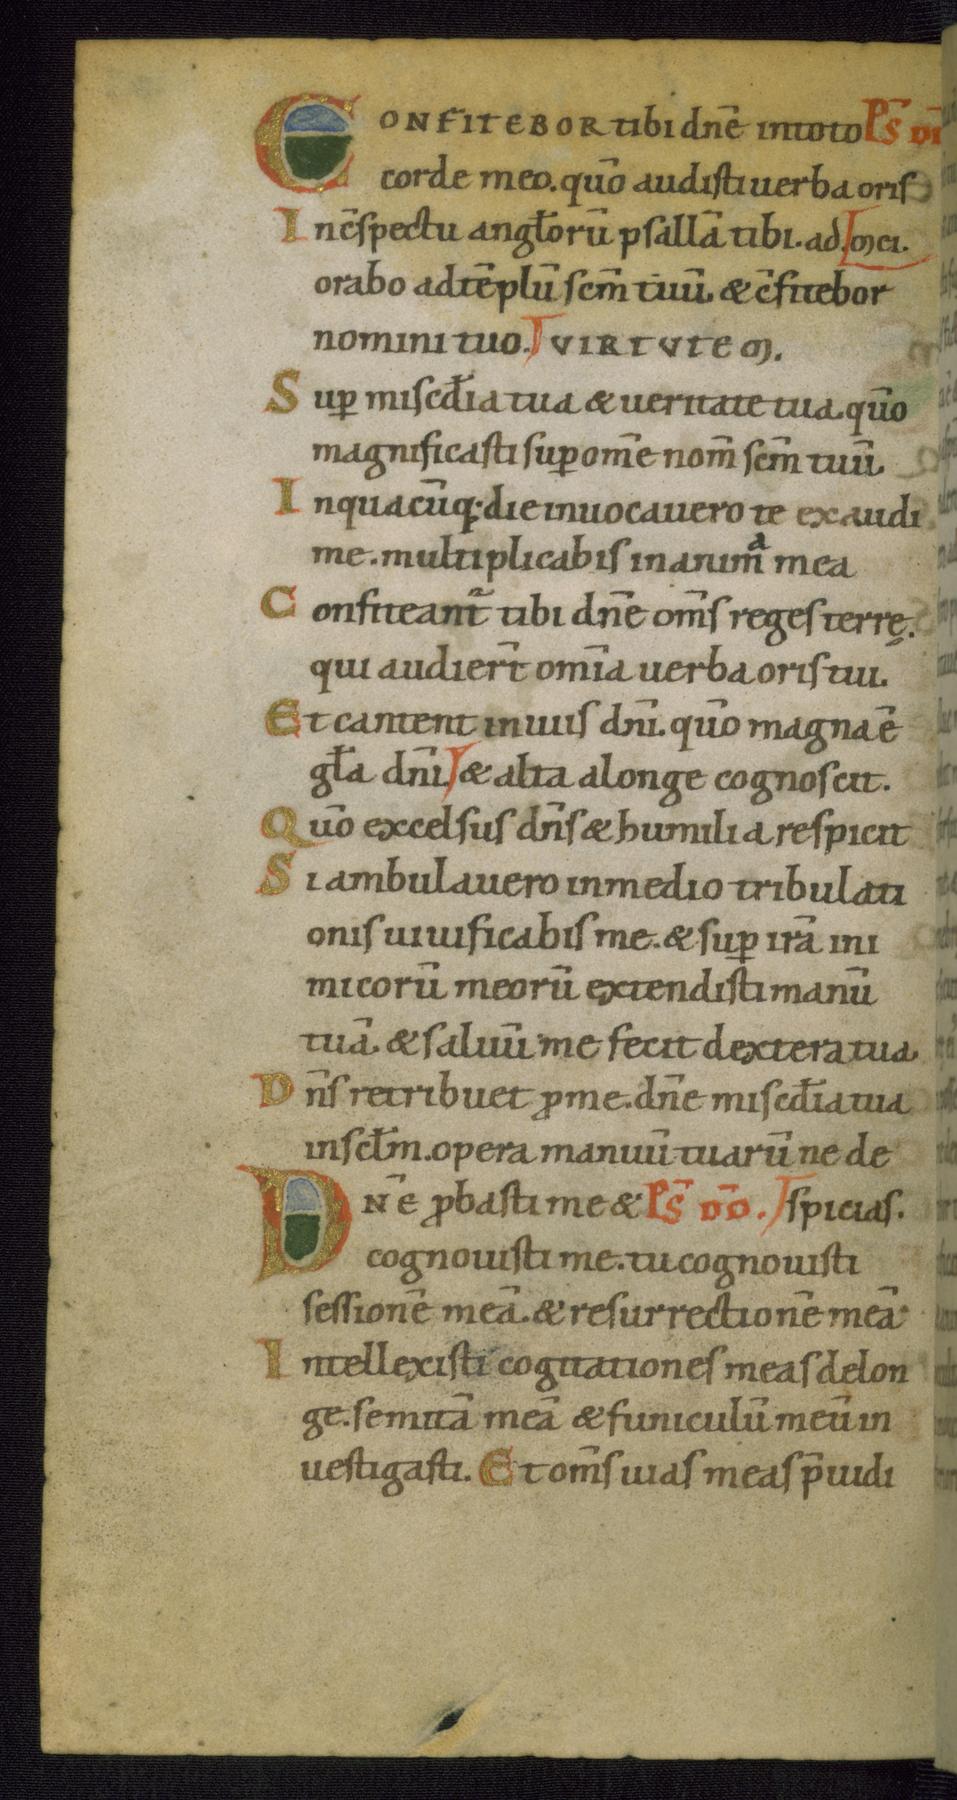 CONFITEBOR tibi dn̄e in toto Ps̄ DĪ
corde meo. quō audisti uerba oris
In c̄spectu angl̄orū psallā tibi. ad mei.
orabo ad tēplū sc̄m tuū. & c̄fitebor
nomini tuo. VIRTUTEM.
Sup̱ misc̄dia tua & ueritate tua. quō
magnificasti sup̱ om̄e nom̄ sc̄m tuū.
In quacūq; die inuocauero te exaudi
me. multiplicabis in anim̄a mea
Confiteant̄ tibi dn̄e om̄s reges terrę.
qui audier̄t om̄ia uerba oris tui.
Et cantent in uiis dn̄i. quō magna ē
gl̄a dn̄i. & alta a longe cognoscit.
Quō excelsus dn̄s & humilia respicit
Si ambulauero in medio tribulati
onis uiuificabis me. & sup̱ irā ini
micorū meorū extendisti manū
tuā. & saluū me fecit dextera tua.
Dn̄s retribuet ꝓ me. dn̄e misc̄dia tua
in sc̄lm. opera manuū tuarū ne de
DN̄E ꝓbasti me & Ps̄ DŌ. spicias.
cognouisti me. tu cognouisti
sessionē meā. & resurrectionē meā
Intellexisti cogitationes meas de lon
ge. semitā meā & funiculū meū in
uestigasti. Et om̄s uias meas p̄uidi